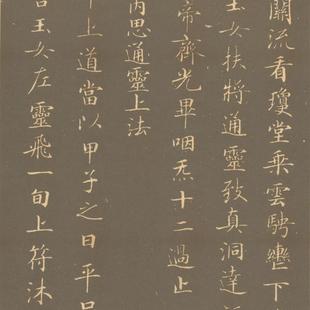 關流看瓊堂乘雲騁轡下
玉女扶將通靈致真洞達
帝齊光畢咽炁十二過止
內思通靈上法
甲上道當以甲子之日平
宮玉女左靈飛一旬上符沐